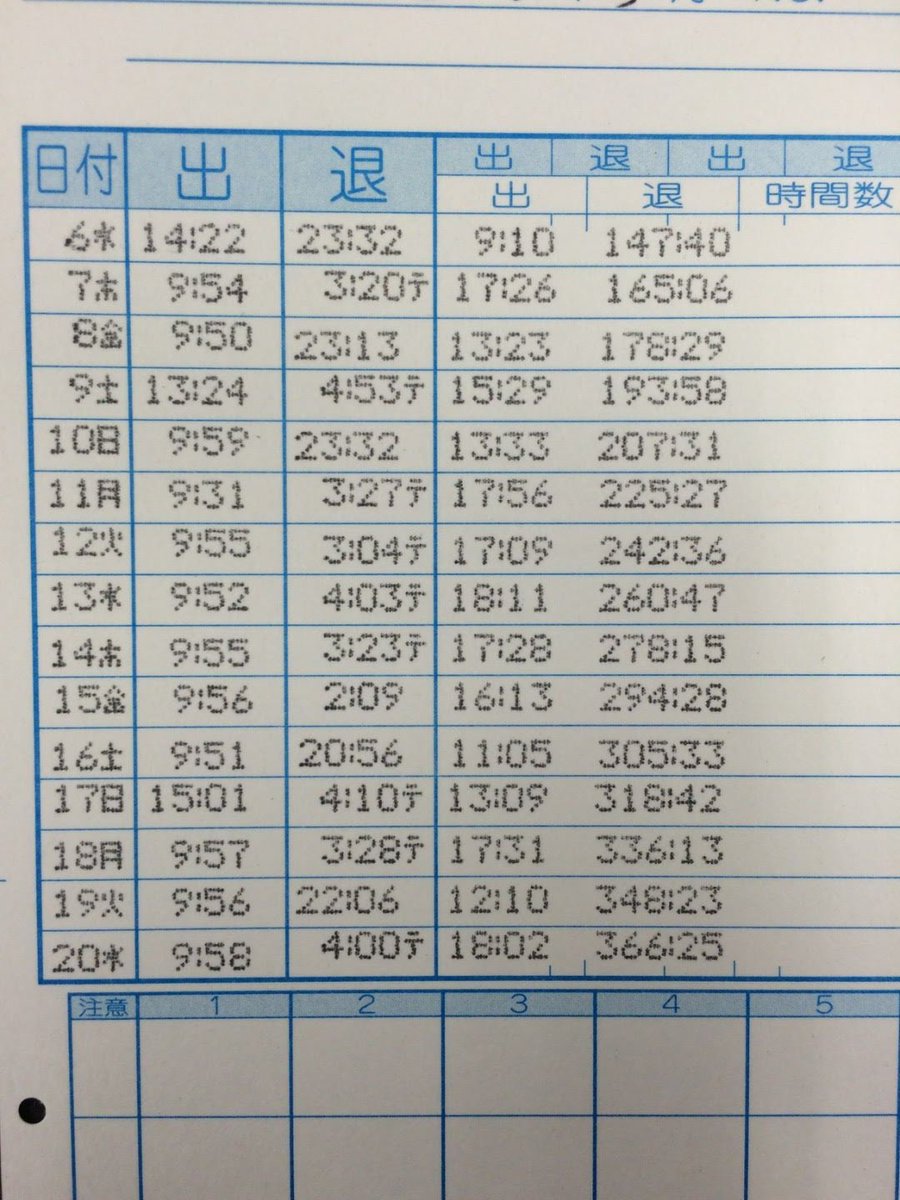 日付 出 退 出 退 出 退
出 退 時間数
6水 14:22 23:32 9:10 147:40
7木 9:54 3:20テ 17:26 165:06
8金 9:50 23:13 13:23 178:29
9土 13:24 4:53テ 15:29 193:58
10日 9:59 23:32 13:33 207:31
11月 9:31 3:27テ 17:56 225:27
12火 9:55 3:04テ 17:09 242:36
13水 9:52 4:03テ 18:11 260:47
14木 9:55 3:23テ 17:28 278:15
15金 9:56 2:09 16:13 294:28
16土 9:51 20:56 11:05 305:33
17日 15:01 4:10テ 13:09 318:42
18月 9:57 3:28テ 17:31 336:13
19火 9:56 22:06 12:10 348:23
20水 9:58 4:00テ 18:02 366:25
注意 1 2 3 4 5